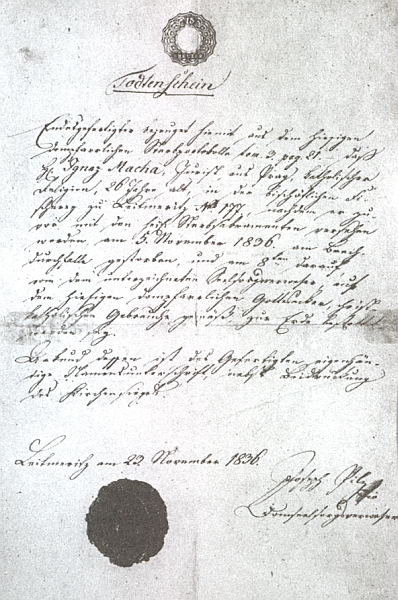 Todtenschein
Endesgefertigter bezeuget hiemit aus dem hiesigen
dompfarrlichen Sterbprotokolle tom. 3. pag. 21. daß
H. Ignaz Macha, Jurist aus Prag, katholischer
Religion, 26 Jahre alt, in der bischöflichen
zu Leitmeritz No 177, nachdem er zu
vor mit den heil. Sterbsakramenten versehen
worden, am 5. November 1836. am Brech
durchfalle gestorben, und am 8ten darauf
von dem unterzeichneten Seelsorgsverweser, auf
dem hiesigen dompfarrlichen Gottesacker, christ
katholischem Gebrauche gemäß zur Erde bestattet
worden sey.
Urkund dessen ist des Gefertigten eigenhän-
dige Namensunterschrift, nebst Beidrückung
des Kirchensiegel.
Leitmeritz am 23. November 1836.
Joseph Pilz
Domseelsorgsverweser